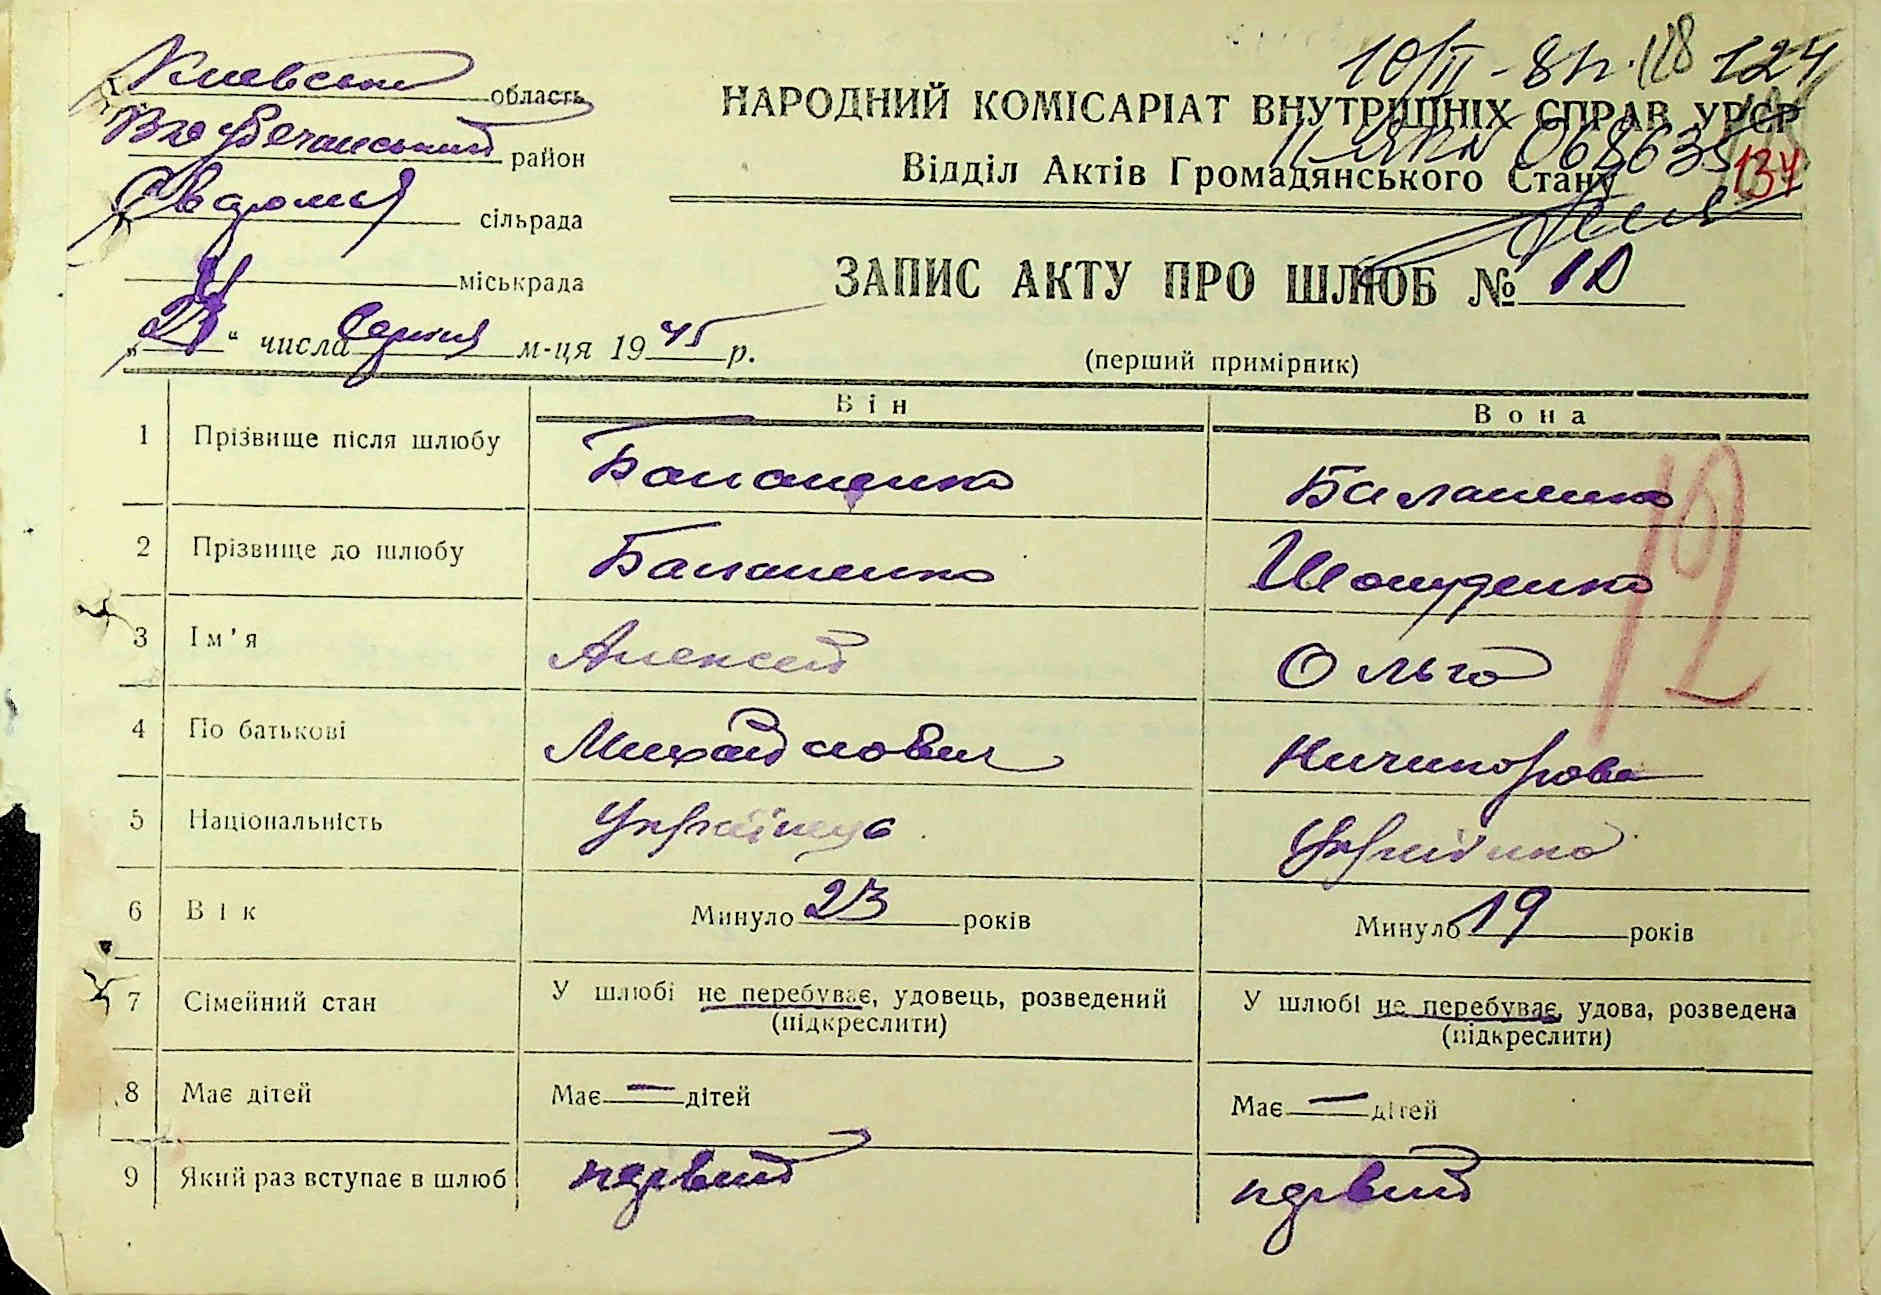 10/II - 81г. 128 124
НАРОДНИЙ КОМІСАРІАТ ВНУТРІШНІХ СПРАВ УРСР
068635
134
Відділ Актів Громадянського Стану
Киевська область
район
сільрада
міськрада
ЗАПИС АКТУ ПРО ШЛЮБ № 10
„23“ числа Серпня м-ця 1945 р.
(перший примірник)
Він Вона
1 Прізвище після шлюбу Баланенко Баланенко
2 Прізвище до шлюбу Баланенко
3 Ім'я Алексей Ольга
4 По батькові Михайлович Ничипорова
5 Національність Українець Українка
6 Вік Минуло 23 років Минуло 19 років
7 Сімейний стан У шлюбі не перебуває, удовець, розведений У шлюбі не перебуває, удова, розведена
(підкреслити) (підкреслити)
8 Має дітей Має — дітей Має — дітей
9 Який раз вступає в шлюб первий первий
12